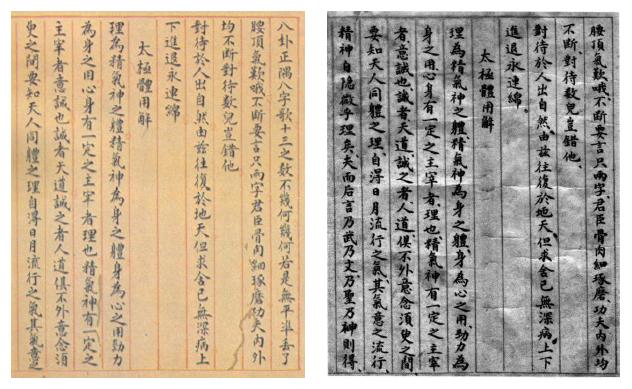 八卦正隅八字歌十三之數不幾何幾何若是無平準丢了
腰頂氣歎哦不斷要言只兩字君臣骨肉細琢磨功夫內外
均不斷對待數兒豈錯他
對待於人出自然由茲往復於地天但求舍己無深病上
下進退永連綿
太極體用解
理為精氣神之體精氣神為身之體身為心之用勁力
為身之用心身有一定之主宰者理也精氣神有一定之
主宰者意誠也誠者天道誠之者人道俱不外意念須
臾之間要知天人同體之理自得日月流行之氣其氣意之
腰頂氣歎哦不斷要言只兩字君臣骨肉細琢磨功夫內外均
不斷對待數兒豈錯他
對待於人出自然由茲往復於地天但求舍己無深病上下
進退永連綿
太極體用解
理為精氣神之體精氣神為身之體身為心之用勁力為
身之用心身有一定之主宰者理也精氣神有一定之主宰
者意誠也誠者天道誠之者人道俱不外意念須臾之間
要知天人同體之理自得日月流行之氣其氣意之流行
精神自隱微乎理矣夫而后言乃武乃文乃聖乃神則得